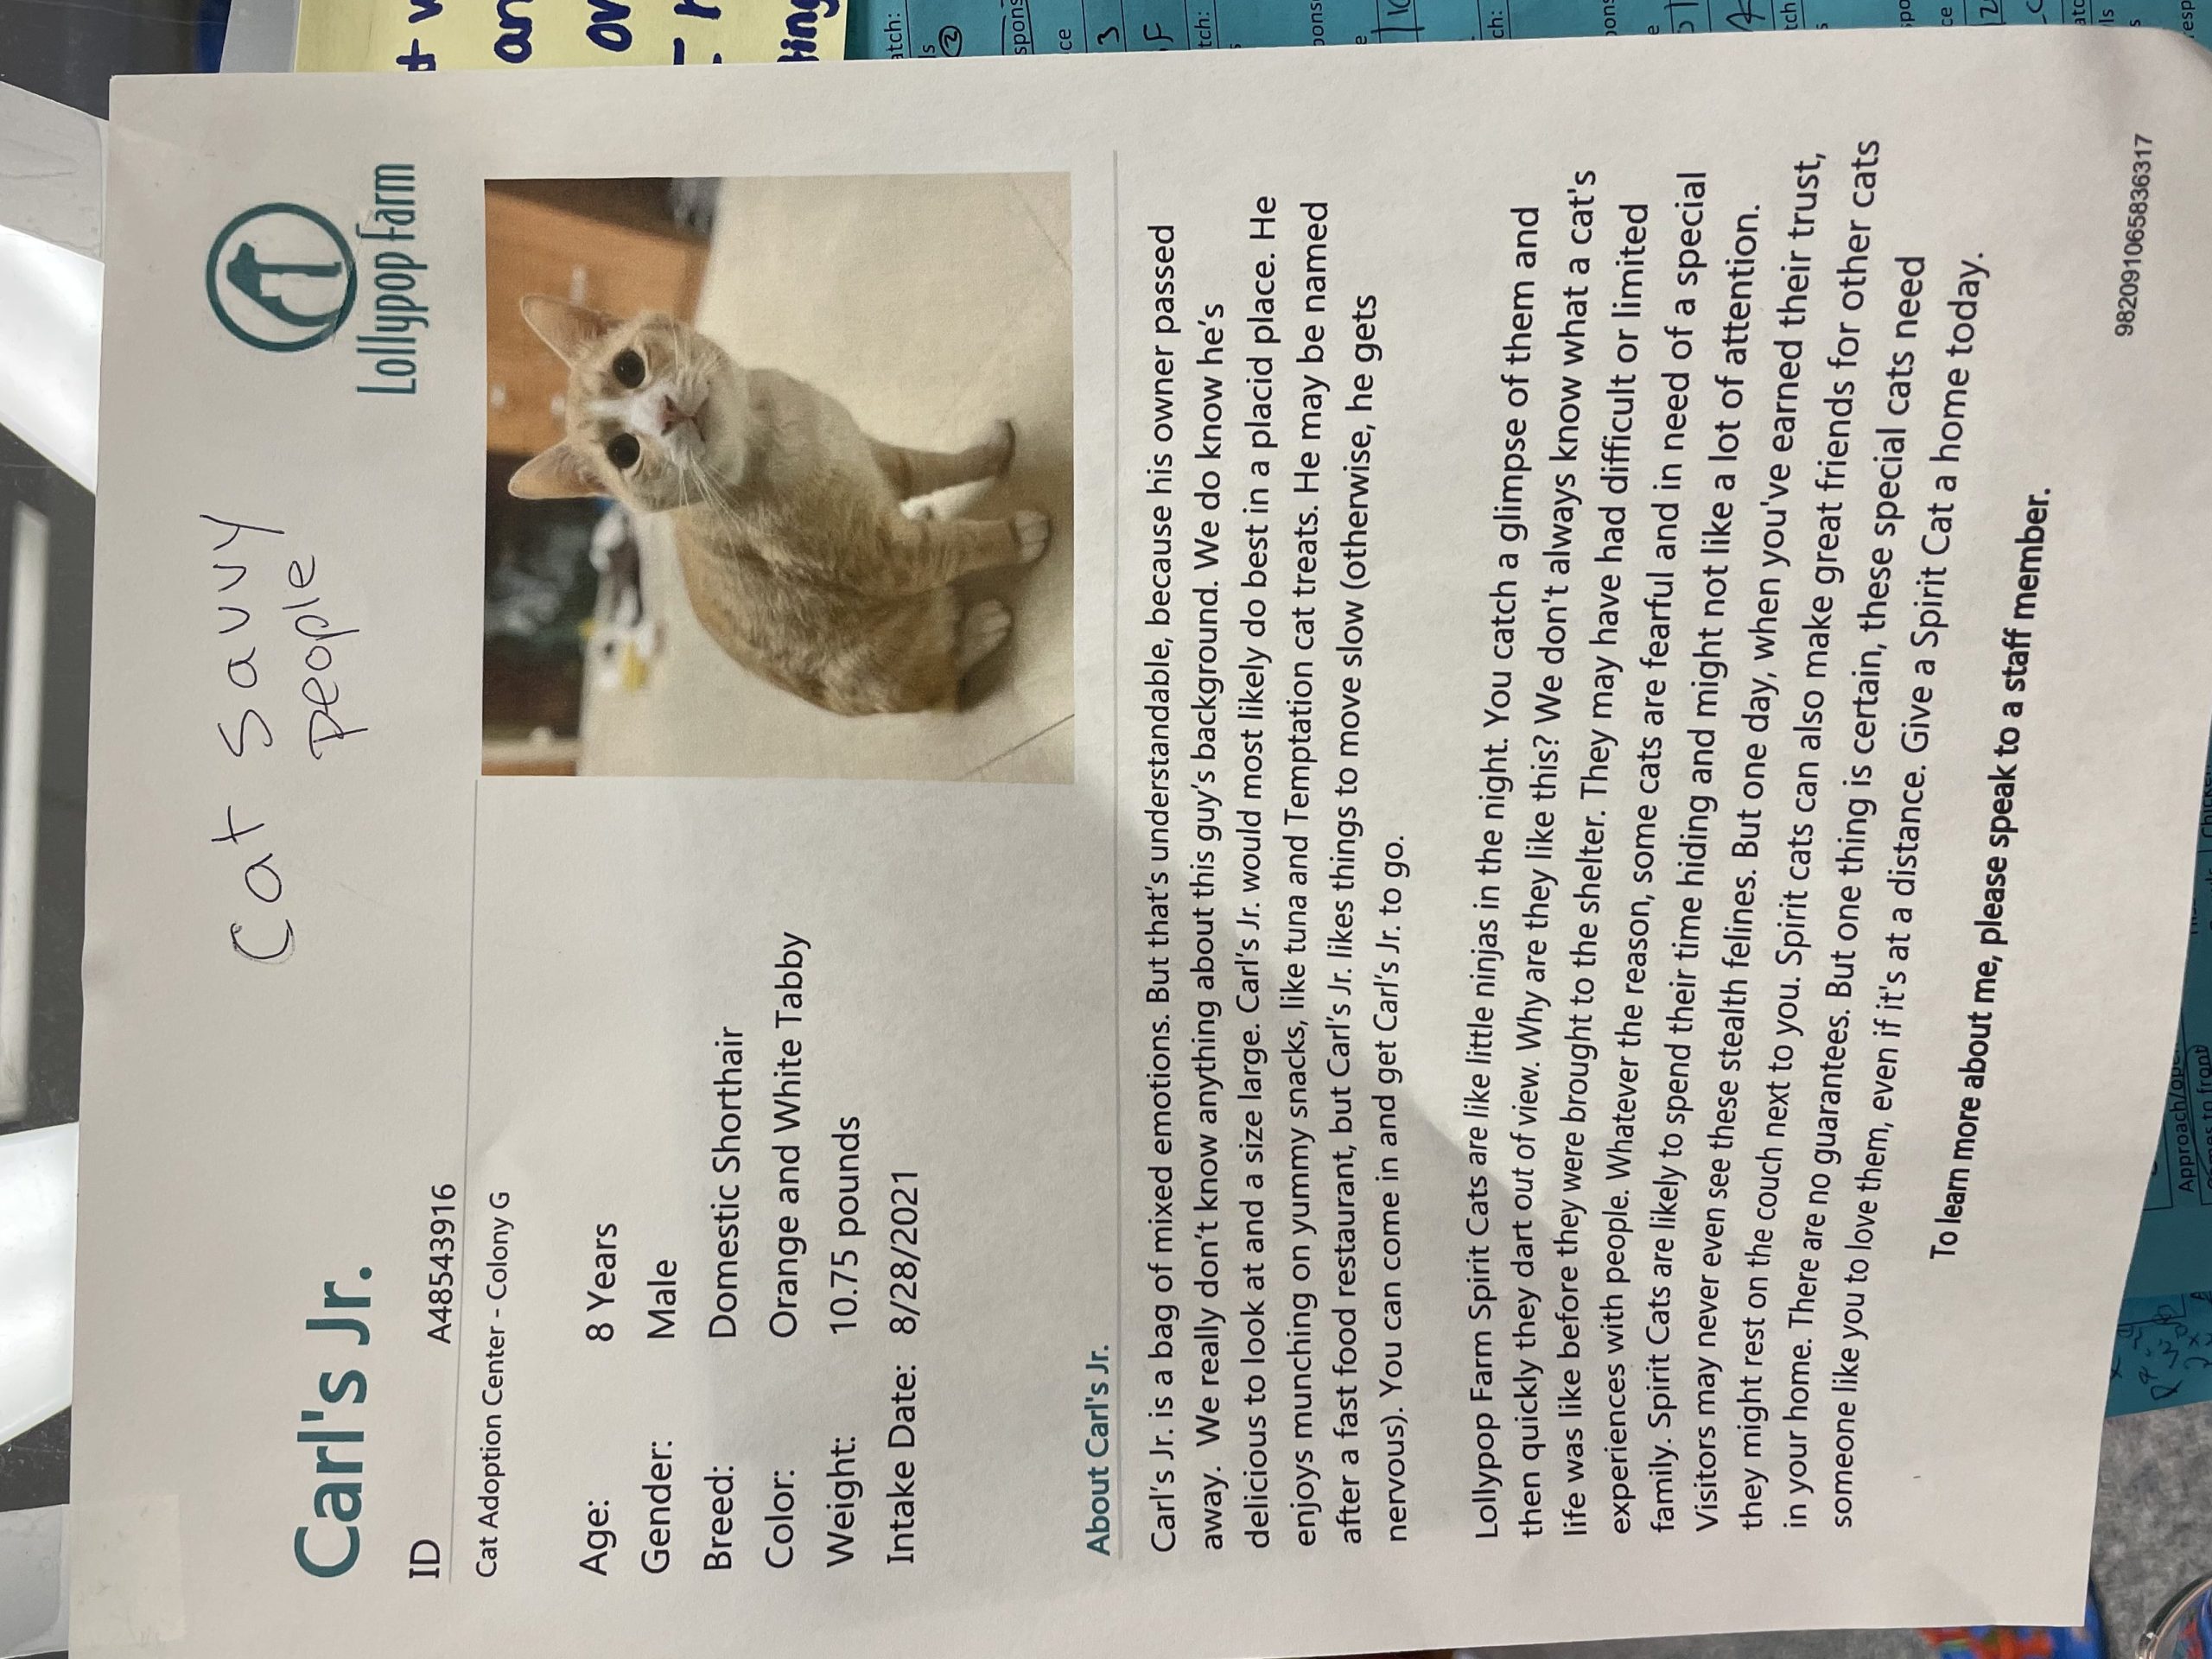 Cat Savvy
people
Lollypop Farm
Carl's Jr.
ID A48543916
Cat Adoption Center - Colony G
Age: 8 Years
Gender: Male
Breed: Domestic Shorthair
Color: Orange and White Tabby
Weight: 10.75 pounds
Intake Date: 8/28/2021
About Carl's Jr.
Carl's Jr. is a bag of mixed emotions. But that's understandable, because his owner passed
away. We really don't know anything about this guy's background. We do know he's
delicious to look at and a size large. Carl's Jr. would most likely do best in a placid place. He
enjoys munching on yummy snacks, like tuna and Temptation cat treats. He may be named
after a fast food restaurant, but Carl's Jr. likes things to move slow (otherwise, he gets
nervous). You can come in and get Carl's Jr. to go.
Lollypop Farm Spirit Cats are like little ninjas in the night. You catch a glimpse of them and
then quickly they dart out of view. Why are they like this? We don't always know what a cat's
life was like before they were brought to the shelter. They may have had difficult or limited
experiences with people. Whatever the reason, some cats are fearful and in need of a special
family. Spirit Cats are likely to spend their time hiding and might not like a lot of attention.
Visitors may never even see these stealth felines. But one day, when you've earned their trust,
they might rest on the couch next to you. Spirit cats can also make great friends for other cats
in your home. There are no guarantees. But one thing is certain, these special cats need
someone like you to love them, even if it's at a distance. Give a Spirit Cat a home today.
To learn more about me, please speak to a staff member.
982091065836317
an
or
Approach/